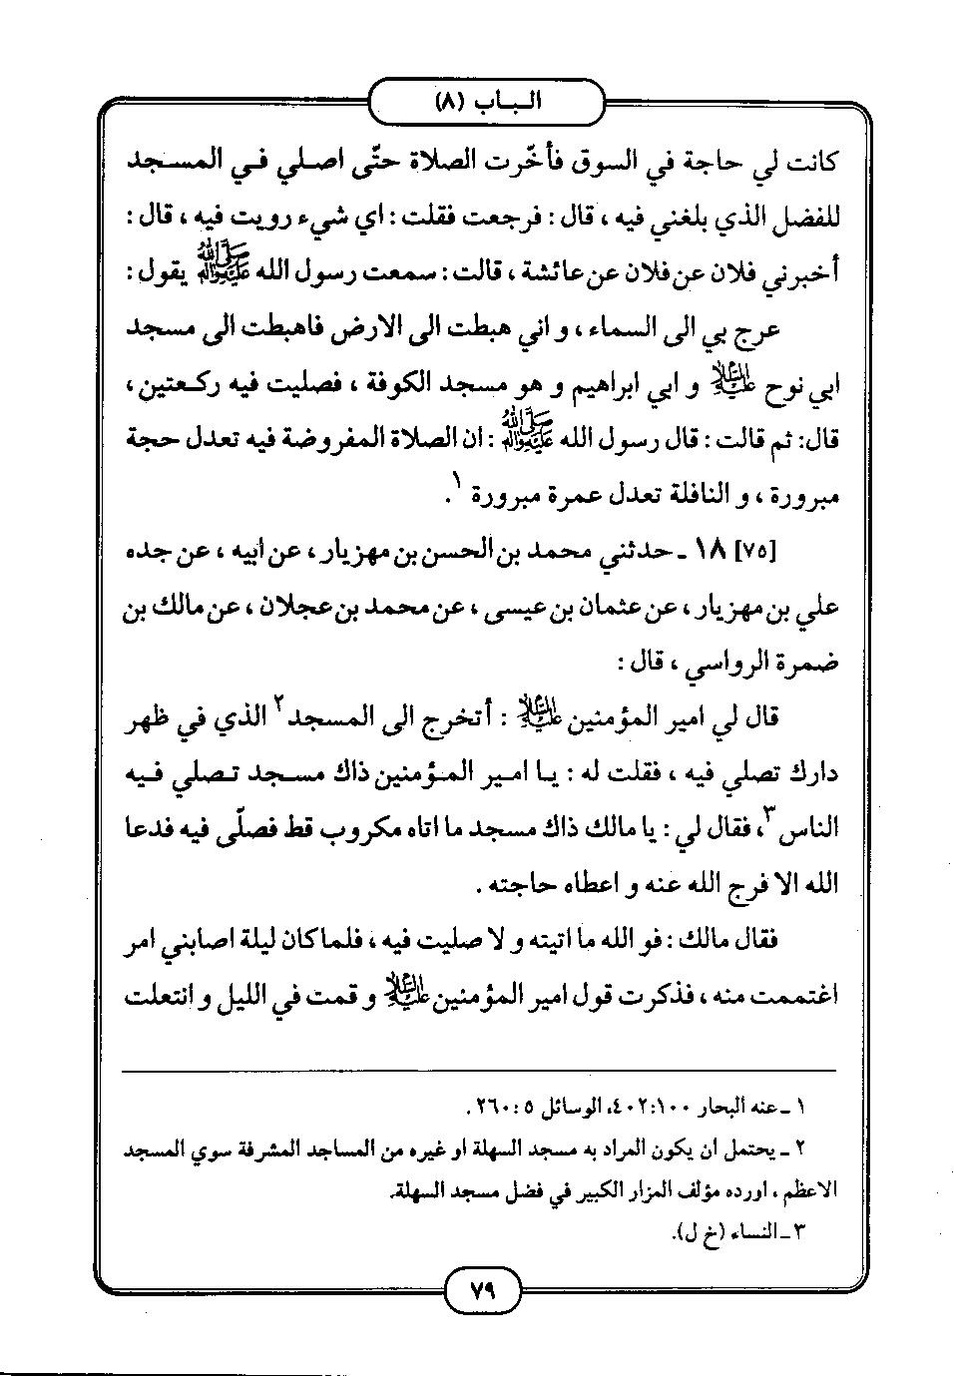 الباب (٨)
كانت لي حاجة في السوق فأخّرت الصلاة حتّى اصلي في المسجد
للفضل الذي بلغني فيه ، قال : فرجعت فقلت : اي شيء رويت فيه ، قال :
أخبرني فلان عن فلان عن عائشة ، قالت : سمعت رسول الله صلى الله عليه وآله يقول :
عرج بي الى السماء ، و اني هبطت الى الارض فاهبطت الى مسجد
ابي نوح عليه السلام و ابي ابراهيم و هو مسجد الكوفة ، فصليت فيه ركعتين ،
قال: ثم قالت : قال رسول الله صلى الله عليه وآله : ان الصلاة المفروضة فيه تعدل حجة
مبرورة ، و النافلة تعدل عمرة مبرورة ١.
[٧٥] ١٨ ـ حدثني محمد بن الحسن بن مهزيار ، عن ابيه ، عن جده
علي بن مهزيار ، عن عثمان بن عيسى ، عن محمد بن عجلان ، عن مالك بن
ضمرة الرواسي ، قال :
قال لي امير المؤمنين عليه السلام : أتخرج الى المسجد ٢ الذي في ظهر
دارك تصلي فيه ، فقلت له : يا امير المؤمنين ذاك مسجد تصلي فيه
الناس ٣، فقال لي : يا مالك ذاك مسجد ما اتاه مكروب قط فصلّى فيه فدعا
الله الا فرج الله عنه و اعطاه حاجته .
فقال مالك : فو الله ما اتيته و لا صليت فيه ، فلما كان ليلة اصابني امر
اغتممت منه ، فذكرت قول امير المؤمنين عليه السلام و قمت في الليل و انتعلت
١ ـ عنه البحار ١٠٠:٤٠٢، الوسائل ٥ : ٢٦٠ .
٢ ـ يحتمل ان يكون المراد به مسجد السهلة او غيره من المساجد المشرفة سوي المسجد
الاعظم ، اورده مؤلف المزار الكبير في فضل مسجد السهلة.
٣ ـ النساء (خ ل).
٧٩